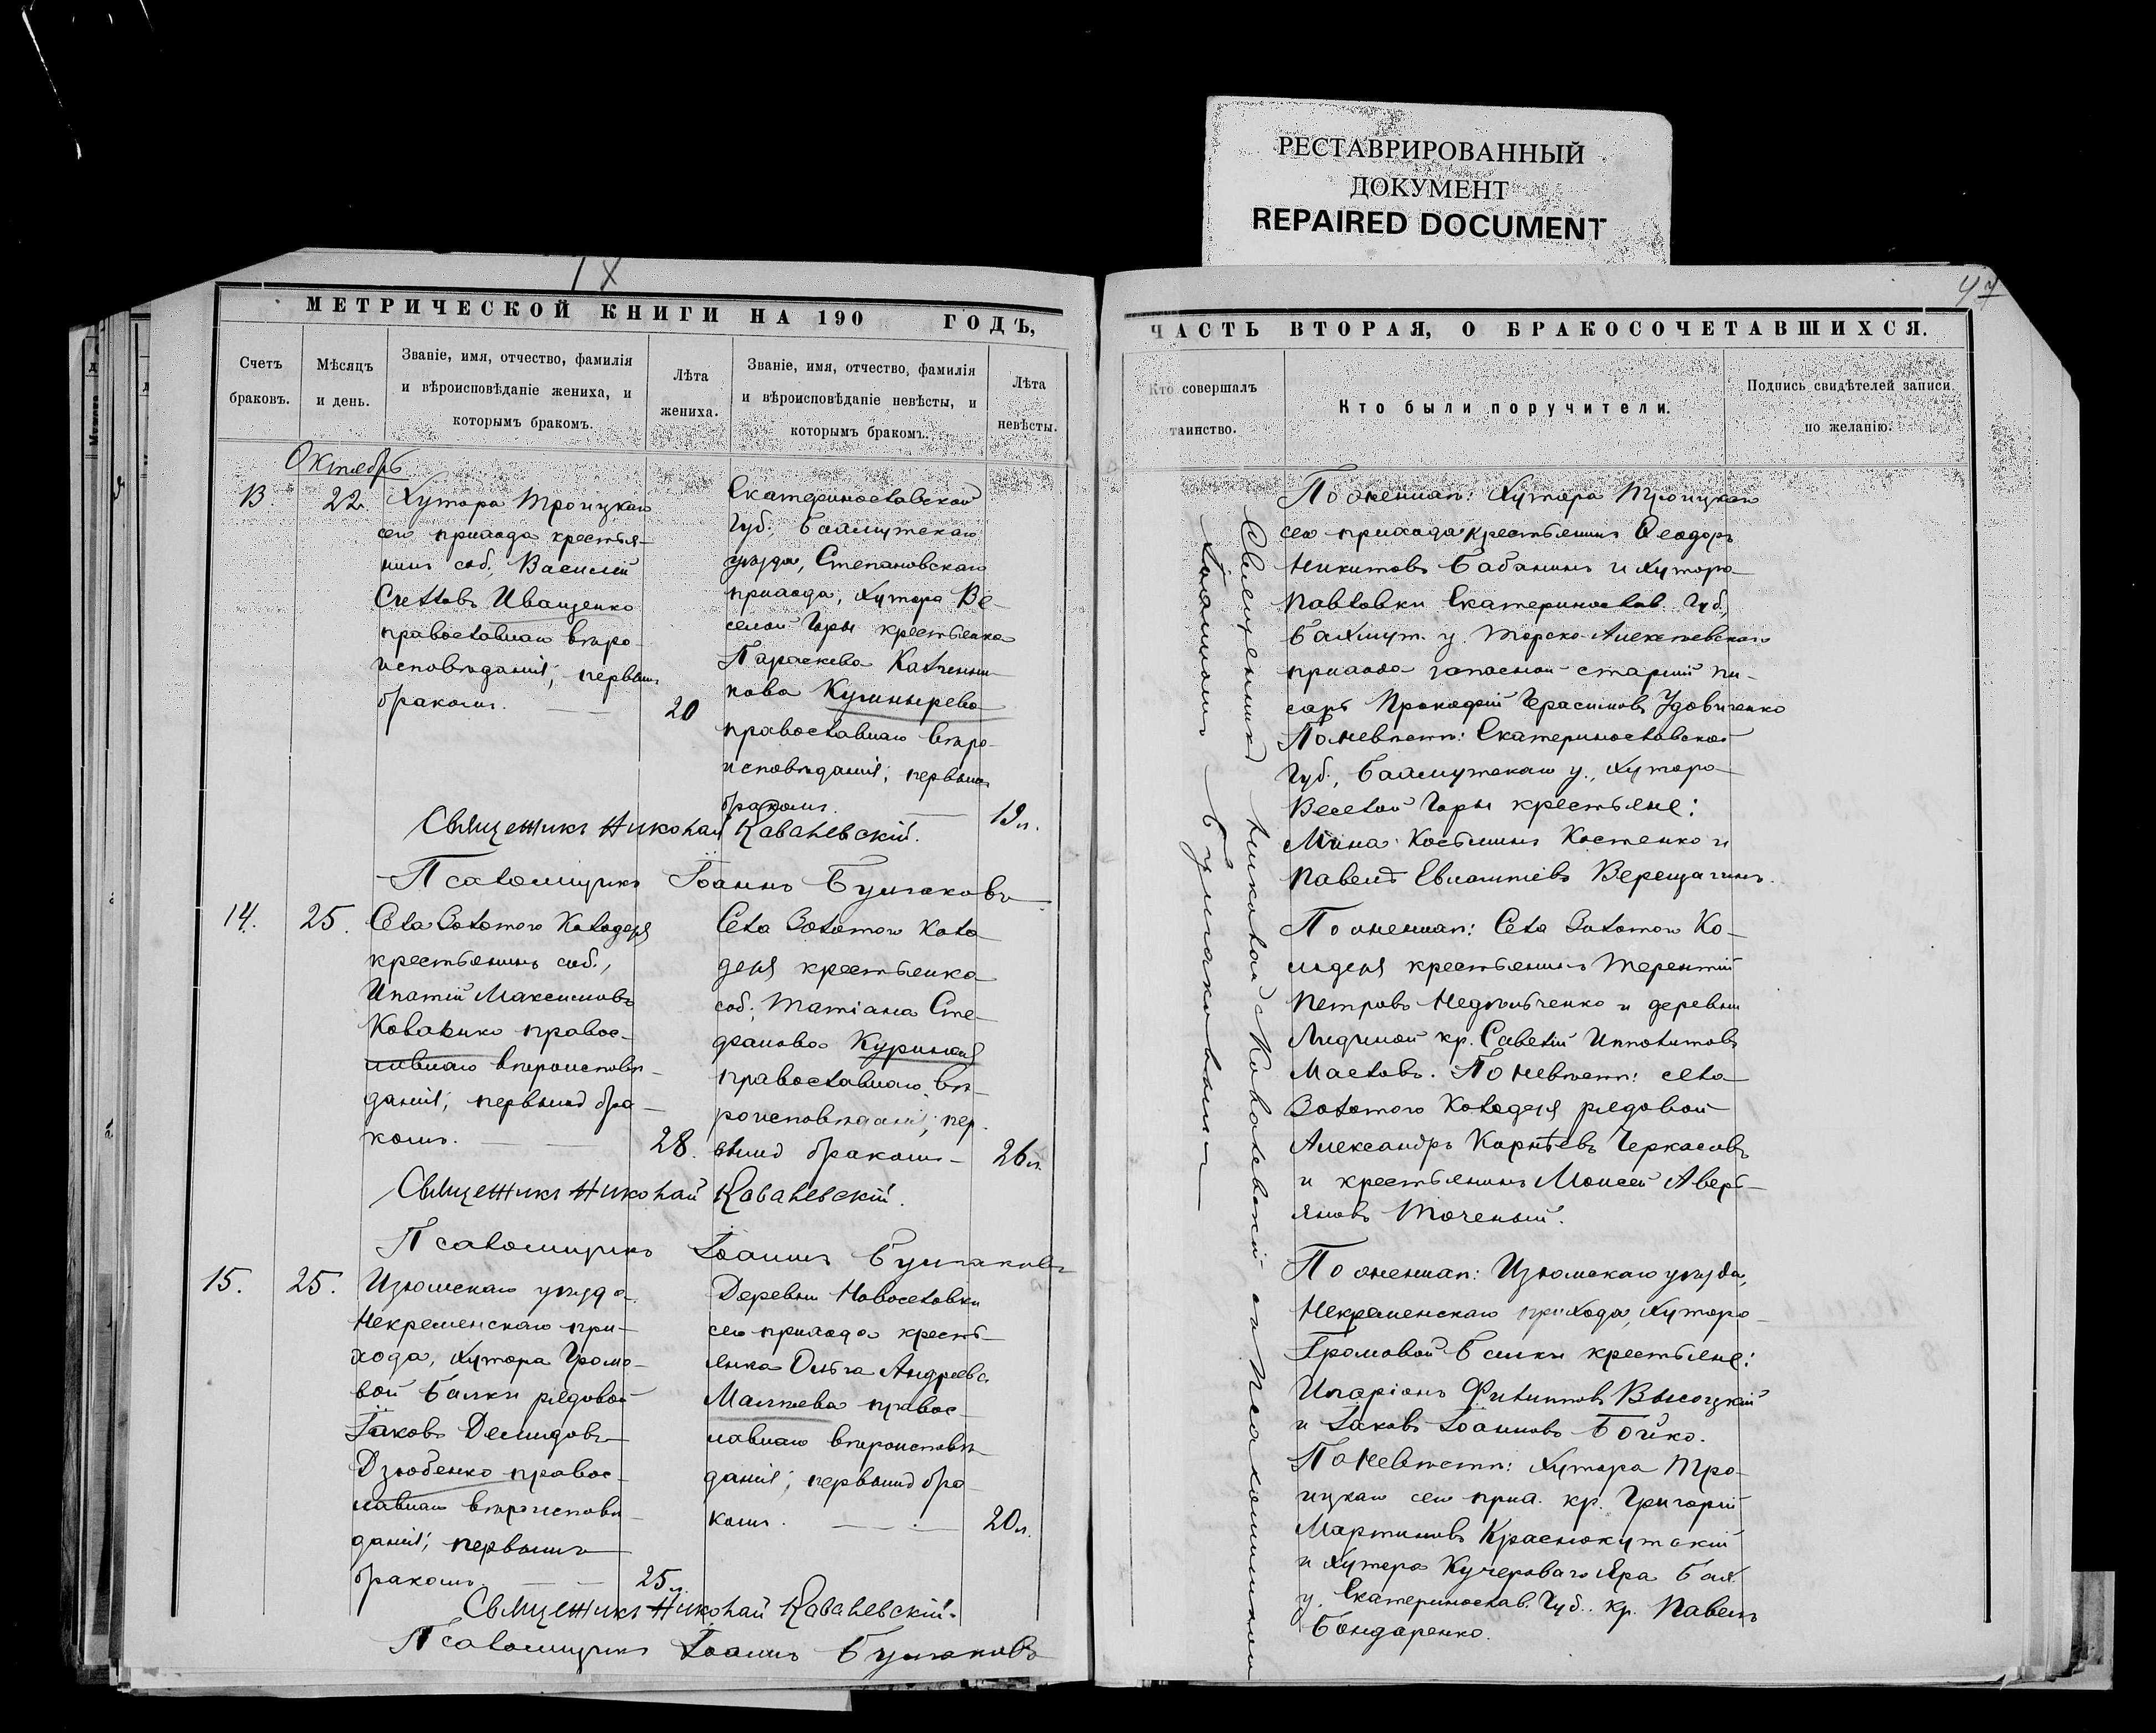 РЕСТАВРИРОВАННЫЙ
ДОКУМЕНТ
REPAIRED DOCUMENT
IX
МЕТРИЧЕСКОЙ КНИГИ НА 190 ГОДЪ,
Счетъ
браковъ.
Мѣсяцъ
и день.
Званіе, имя, отчество, фамилія
и вѣроисповѣданіе жениха, и
которымъ бракомъ.
Лѣта
жениха.
Званіе, имя, отчество, фамилія
и вѣроисповѣданіе невѣсты, и
которымъ бракомъ.
Лѣта
невѣсты.
Октябрь
13.
22.
Хутора Троицкаго
сего прихода крестья-
нинъ соб., Василій
Иващенко
православнаго вѣро-
исповѣданія, первымъ
бракомъ.
20
Екатеринославской
губ., Бахмутскаго
уѣзда, Степановскаго
прихода, хутора Ве-
селой Горы крестьянка
Параскева
нова
православнаго вѣро-
исповѣданія, первымъ
бракомъ.
19 л.
Священникъ Николай Ковалевскій.
Псаломщикъ Іоаннъ Булгаковъ
14.
25.
Села Золотого Колодезя
крестьянинъ соб.,
Ипатій Максимовъ
Коваленко правос-
лавнаго вѣроисповѣ-
данія, первымъ бра-
комъ.
28.
Села Золотого Коло
дезя крестьянка
соб., Татіана Сте-
фанова
православнаго вѣ-
роисповѣданія, пер-
вымъ бракомъ
26 л.
Священникъ Николай Ковалевскій.
Псаломщикъ Іоаннъ Булгаковъ
15.
25.
Изюмскаго уѣзда
Некременскаго при-
хода, хутора Громо-
вой Балки рядовой
Іаковъ Демидовъ
Дзюбенко правос-
лавнаго вѣроисповѣ-
данія, первымъ
бракомъ.
25 л.
Деревни Новоселовки
сего прихода кресть-
янка Ольга Андреева
Малѣева правос-
лавнаго вѣроисповѣ-
данія, первымъ бра-
комъ.
20 л.
Священникъ Николай Ковалевскій.
Псаломщикъ Іоаннъ Булгаковъ
47
ЧАСТЬ ВТОРАЯ, О БРАКОСОЧЕТАВШИХСЯ.
Кто совершалъ
таинство.
Кто были поручители.
Подпись свидѣтелей записи
по желанію.
Священникъ Николай Ковалевскій съ псаломщикомъ
Іоанномъ Булгаковымъ
По женихѣ: Хутора Троицкаго
сего прихода крестьянинъ Ѳеодоръ
Никитовъ Бабанинъ и хутора
Павловки Екатериносл. губ.,
Бахмут. у. Торско-Алексѣевскаго
прихода запасной старшій пи-
сарь Прокофій Герасимовъ Удовиченко
По невѣстѣ: Екатеринославской
губ., Бахмутскаго у., хутора
Веселой Горы крестьяне:
Мина Косьминъ Костенко и
Павелъ Верещагинъ.
По женихѣ: Села Золотого Ко-
лодезя крестьянинъ Терентій
Петровъ и деревни
Лидиной кр. Савелій Ипполитовъ
Масловъ. По невѣстѣ: села
Золотого Колодезя рядовой
Александръ Корнѣевъ Черкасовъ
и крестьянинъ Моисей Аверь-
яновъ Точеный.
По женихѣ: Изюмскаго уѣзда,
Некременскаго прихода, хутора
Громовой Балки крестьяне:
Иларіонъ Филипповъ Высоцкій
и Іаковъ Іоанновъ Бойко.
По невѣстѣ: Хутора Тро-
ицкаго сего прих. кр. Григорій
Мартиновъ Краснокутскій
и хутора Кучероваго Яра Бах.
у. Екатеринослав. губ. кр. Павелъ
Бондаренко.